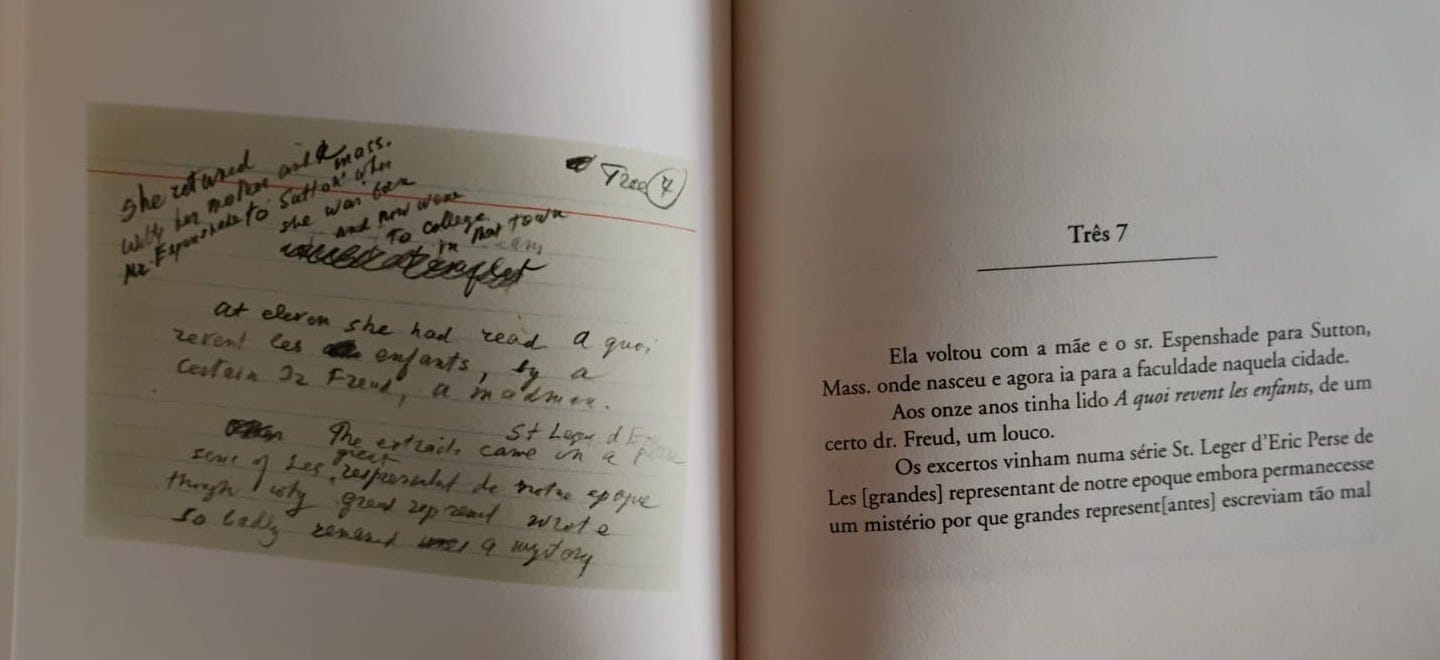 she returned
with her mother and Mass.
Mr. Espenshade to Sutton where
she was born
and now went
to college
in that town
Three 7
at eleven she had read A quoi
revent les enfants, by a
certain Dr Freud, a madman.
St Leger d'
The extraits came in a
serie of Les great representant de notre epoque
though why great represent wrote
so badly remained a mystery
Três 7
Ela voltou com a mãe e o sr. Espenshade para Sutton,
Mass. onde nasceu e agora ia para a faculdade naquela cidade.
Aos onze anos tinha lido A quoi revent les enfants, de um
certo dr. Freud, um louco.
Os excertos vinham numa série St. Leger d'Eric Perse de
Les [grandes] representant de notre epoque embora permanecesse
um mistério por que grandes represent[antes] escreviam tão mal